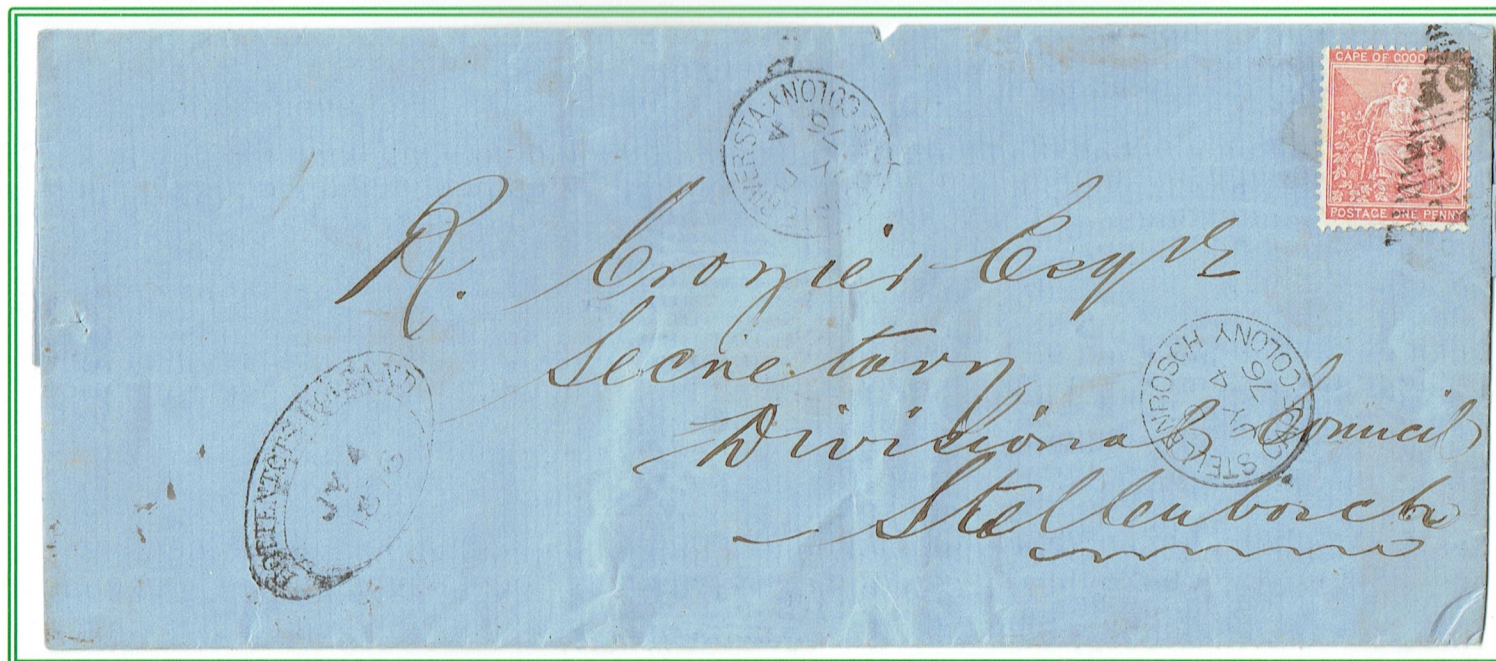 CAPE OF GOOD
POSTAGE ONE PENNY
COLONY
4
76
R. Crozier Esqre
Secretary
Divisional Council
Stellenbosch
STELLENBOSCH
COLONY
JY
4
76
HOTTENTOTS HOLLAND
JY 4
1876